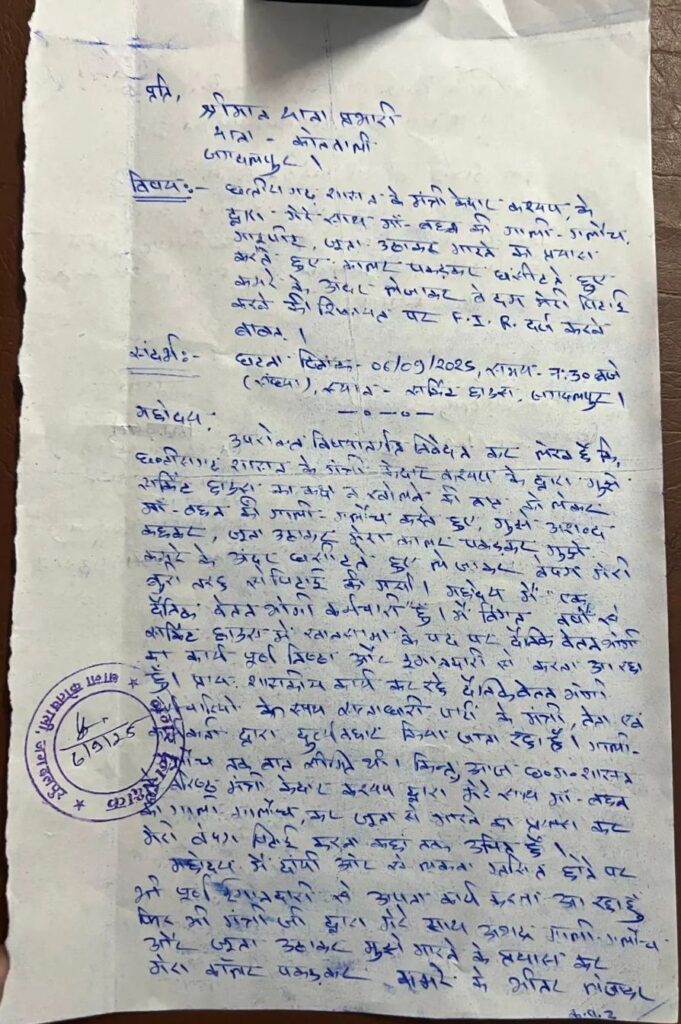 प्रति,
श्रीमान थाना प्रभारी
थाना - कोतवाली
जगदलपुर।
विषय:- छत्तीसगढ़ शासन के मंत्री केदार कश्यप, के
द्वारा मेरे साथ माँ-बहन की गाली-गलौच,
मारपीट, जुता उठाकर मारने का प्रयास
करते हुए कालर पकड़कर घसीटते हुए
कमरे के अंदर लेजाकर बेदम मेरी पिटाई
करने की शिकायत पर F.I.R. दर्ज करने
बाबत।
संदर्भ:- घटना दिनांक- 06/09/2025, समय- 7:30 बजे
(संध्या), स्थान- सर्किट हाउस, जगदलपुर।
—०—०—
महोदय,
उपरोक्त विषयान्तर्गत निवेदन कर लेख है कि,
छत्तीसगढ़ शासन के मंत्री केदार कश्यप के द्वारा मुझे
सर्किट हाउस का कक्ष न खोलने की बात को लेकर
माँ-बहन की गाली-गलौच करते हुए, मुझे
कहकर, जुता उठाकर मेरा कालर पकड़कर मुझे
कमरे के अंदर घसीटते हुए ले जाकर बेदम मेरी
बुरी तरह से पिटाई की गयी। महोदय मैं एक
दैनिक वेतन भोगी कर्मचारी हूँ। मैं विगत वर्षो से
सर्किट हाउस में खानसामा के पद पर दैनिक वेतन भोगी
का कार्य पूर्ण निष्ठा और ईमानदारी से करता आ रहा
हूँ। प्रायः शासकीय कार्य कर रहे दैनिक वेतन भोगी
के साथ सत्ताधारी पार्टी के मंत्री, नेता एवं
द्वारा दुर्व्यवहार किया जाता रहा है। गाली-
तक बात सीमित थी। किन्तु आज छ०ग० शासन
मंत्री केदार कश्यप द्वारा मेरे साथ माँ-बहन
की गाली गलौच, कर जुता से मारने का प्रयास कर
मेरा बेदम पिटाई करना कहां तक उचित है।
महोदय मैं और से ग्रसित होने पर
भी पूर्ण ईमानदारी से अपना कार्य करता आ रहा हूँ
फिर भी मंत्री जी द्वारा मेरे साथ अभद्र गाली-गलौच
और जुता उठाकर मुझे मारने के प्रयास कर
मेरा कॉलर पकड़कर कमरे के भीतर लेजाकर
थाना कोतवाली, जगदलपुर
6/9/25